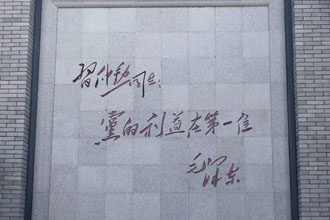 習仲勛同志:
黨的利益在第一位
毛澤東